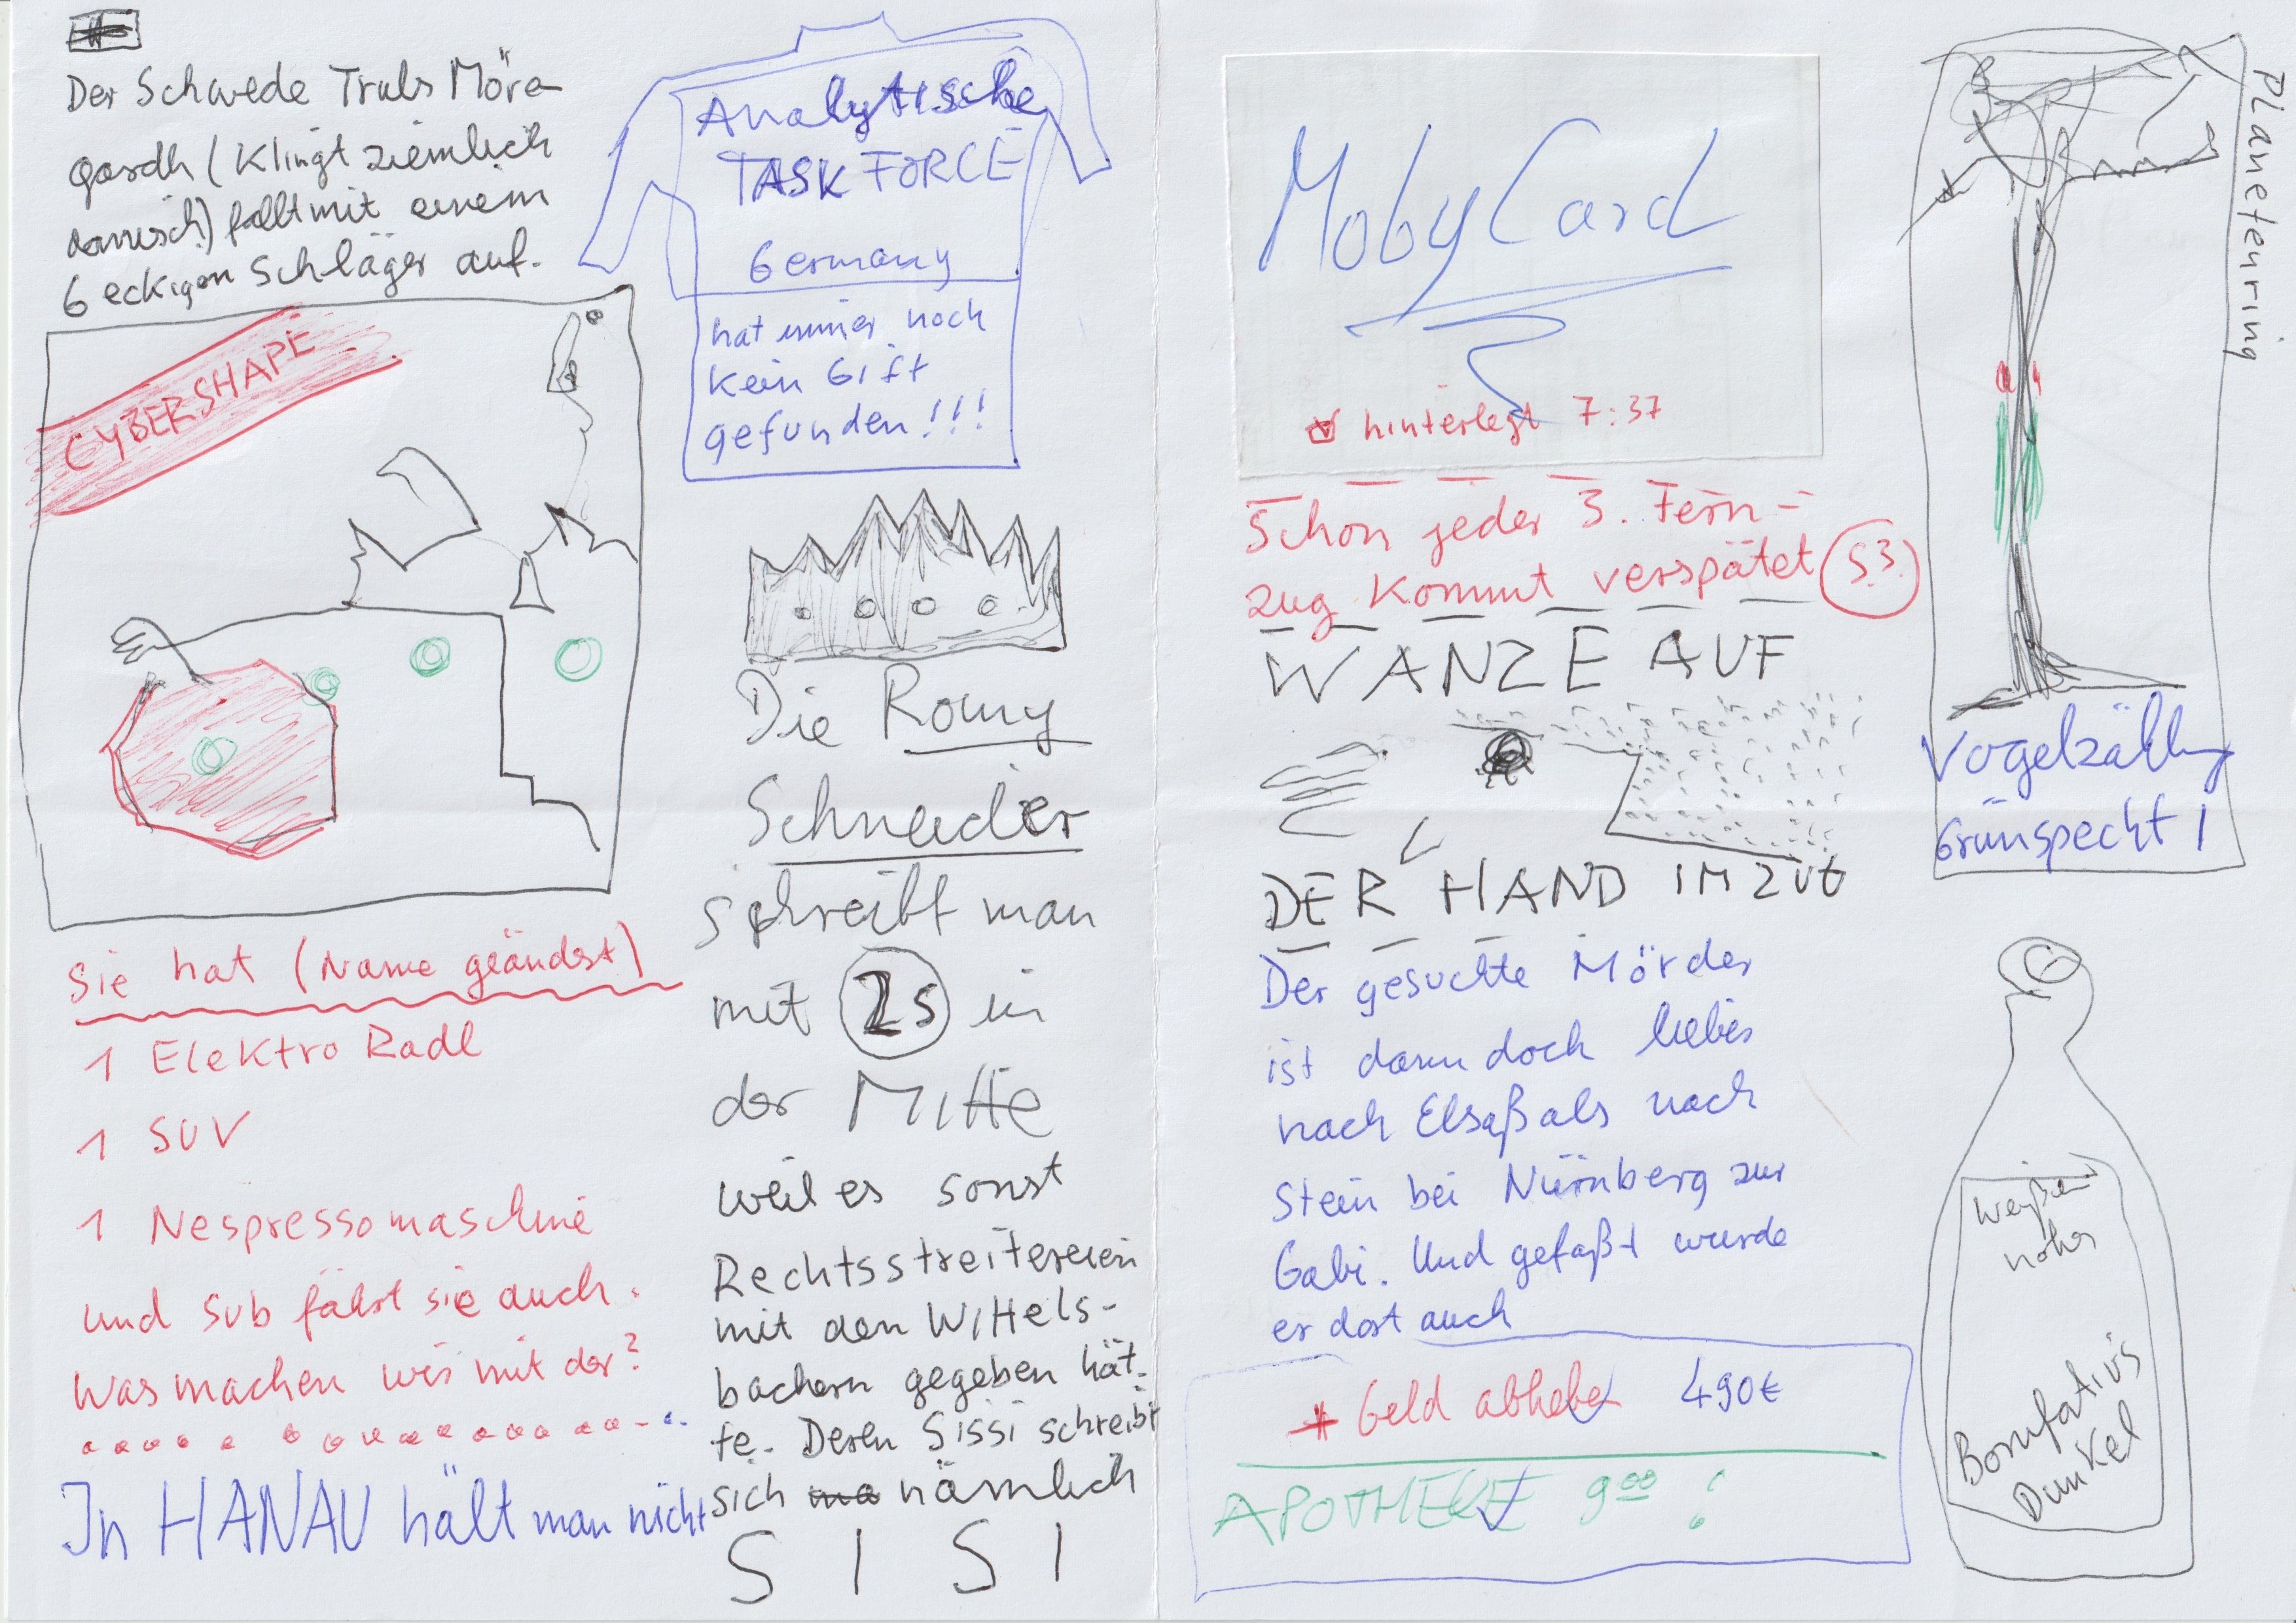 Der Schwede Truls Möre-
gardh (klingt ziemlich
dänisch) fällt mit einem
6 eckigen Schläger auf.
CYBERSHAPE
Sie hat (Name geändert)
1 Elektro Radl
1 SUV
1 Nespressomaschine
und SUB fährt sie auch.
Was machen wir mit der?
In HANAU hält man nicht
Analytische
TASK FORCE
Germany
hat immer noch
kein Gift
gefunden!!!
Die Romy
Schneider
schreibt man
mit 2s in
der Mitte
weil es sonst
Rechtsstreitereien
mit den Wittels-
bachern gegeben hät-
te. Deren Sissi schreibt
sich nämlich
SISI
MobyCard
hinterlegt 7:37
Schon jeder 3. Fern-
zug kommt verspätet S3
WANZE AUF
DER HAND IM ZUG
Der gesuchte Mörder
ist dann doch lieber
nach Elsaß als nach
Stein bei Nürnberg zur
Gabi. Und gefaßt wurde
er dort auch
Geld abheben 490€
APOTHEKE 9⁰⁰
Planetenring
Vogelzählung
Grünspecht 1
Weißen
noher
Bonifatius
Dunkel